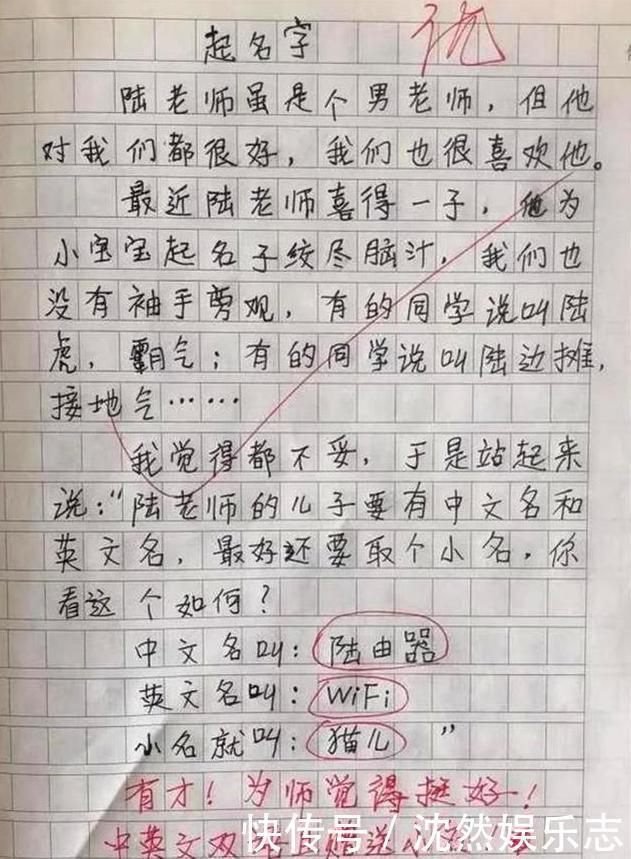 起名字
优
陆老师虽是个男老师，但他
对我们都很好，我们也很喜欢他。
最近陆老师喜得一子，他为
小宝宝起名子绞尽脑汁，我们也
没有袖手旁观，有的同学说叫陆
虎，霸气；有的同学说叫陆边摊，
接地气……
我觉得都不妥，于是站起来
说：“陆老师的儿子要有中文名和
英文名，最好还要取个小名，你
看这个如何？
中文名叫：陆由器
英文名叫：WiFi
小名就叫：猫儿”
有才！为师觉得挺好！
中英文双
快传号/沈然娱乐志